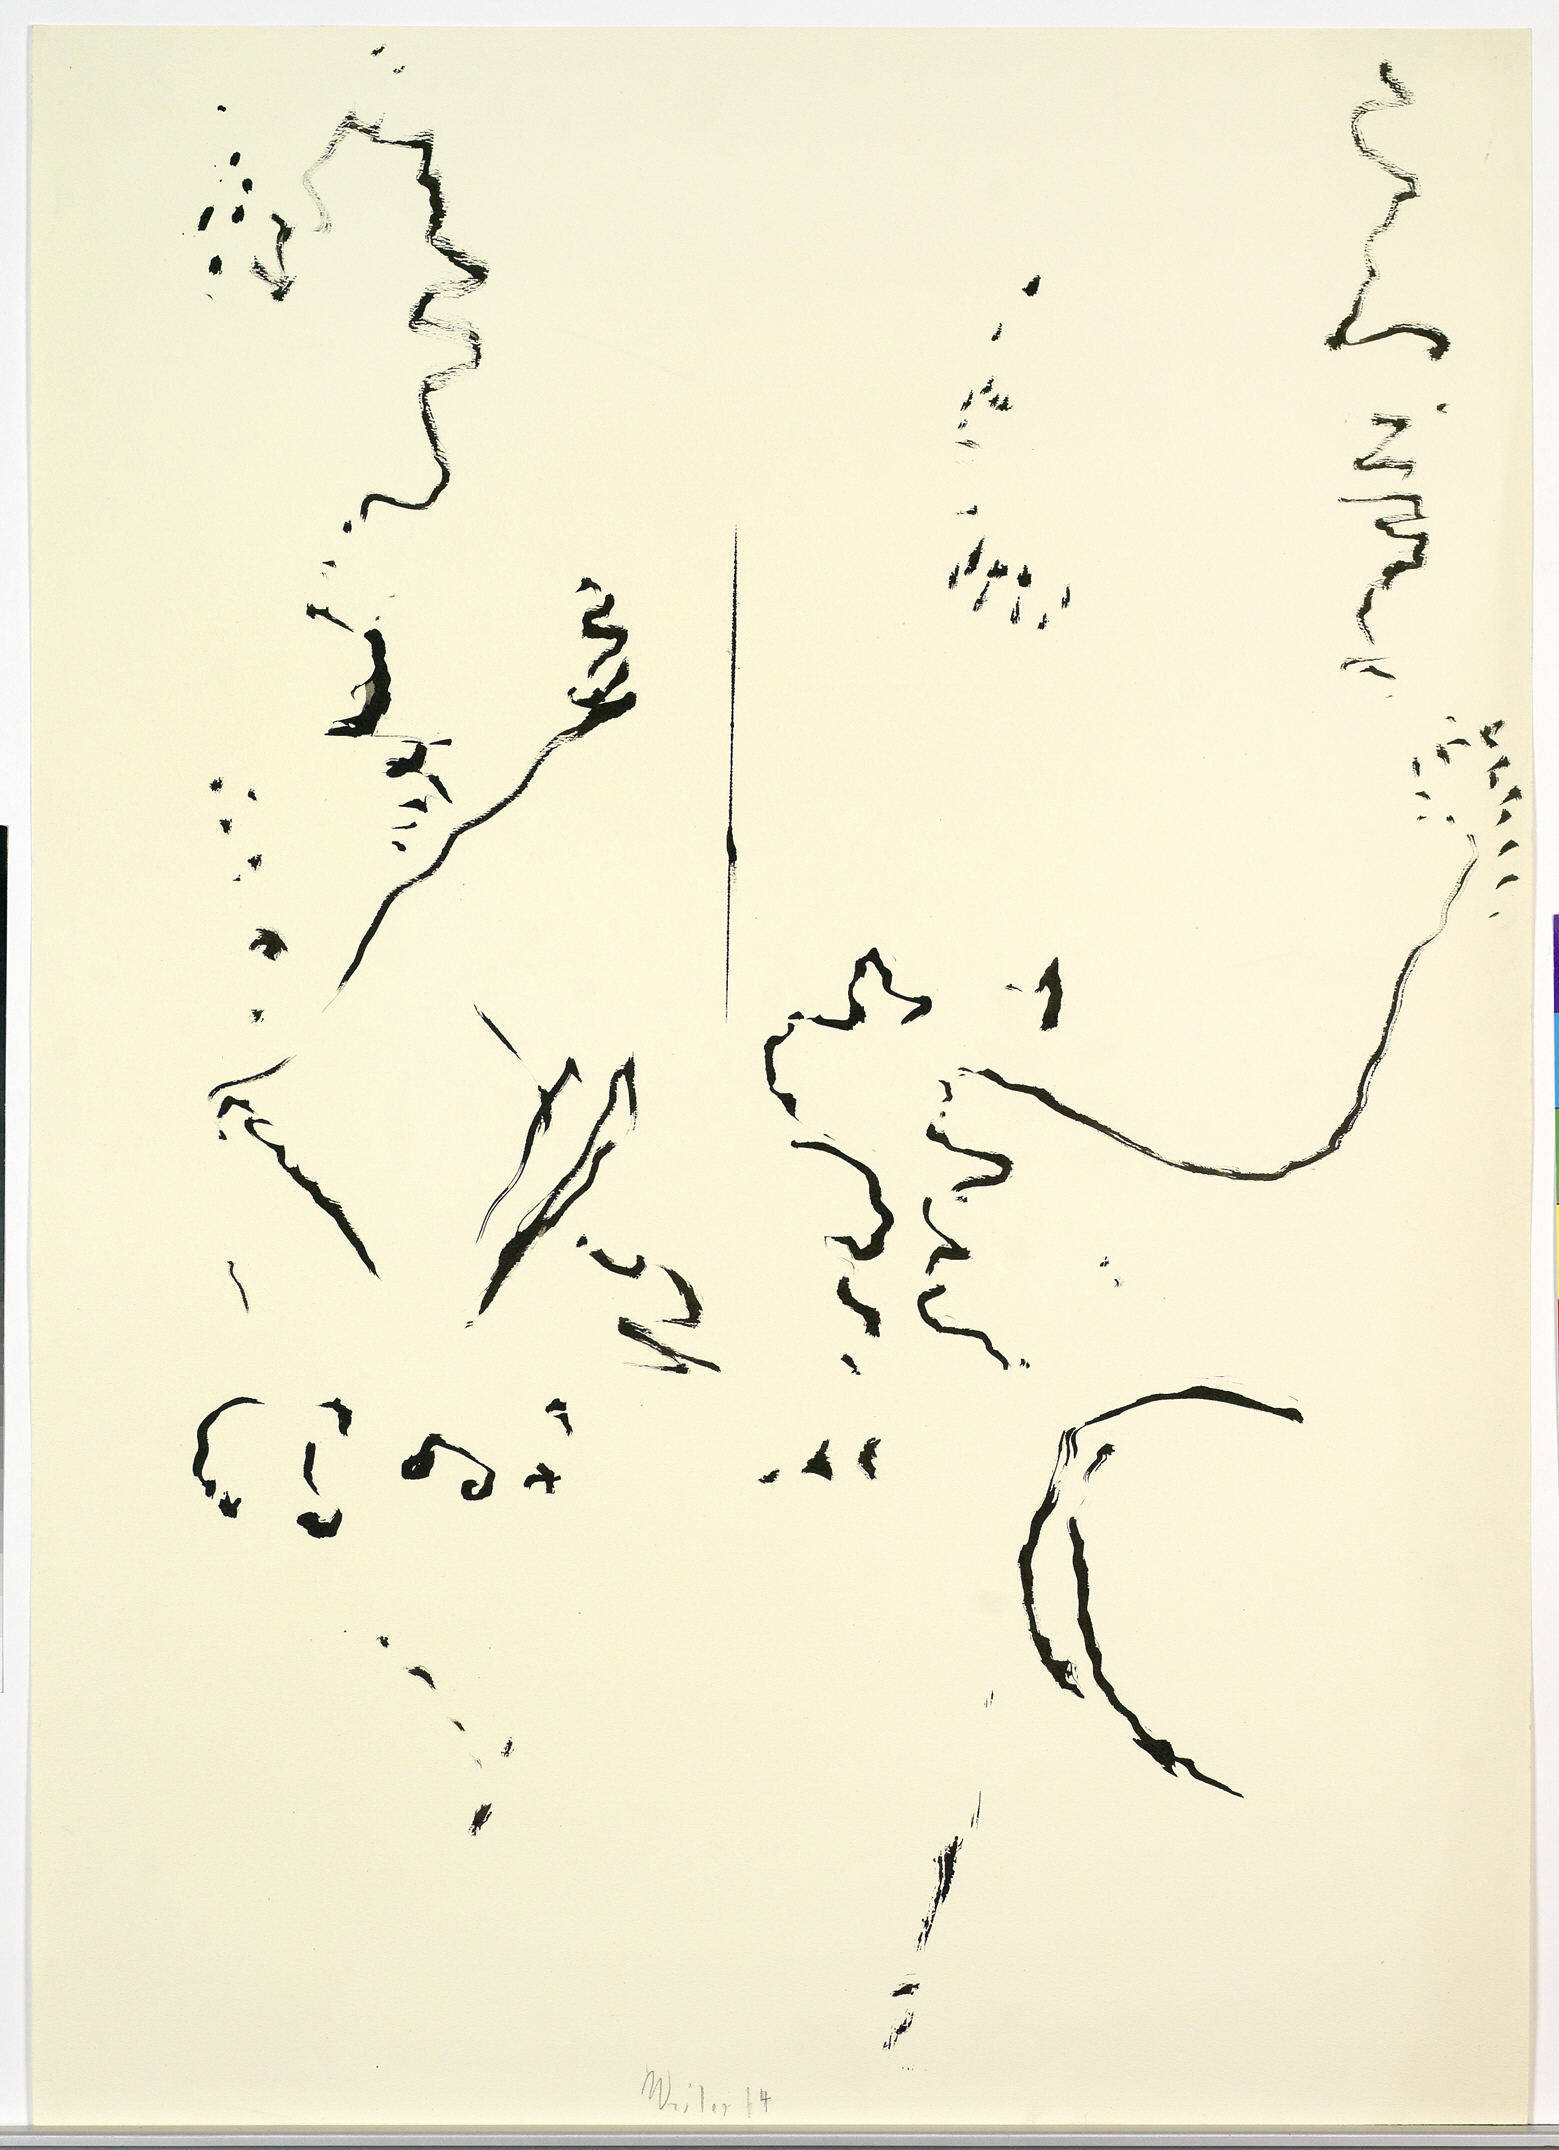 Weiler 64